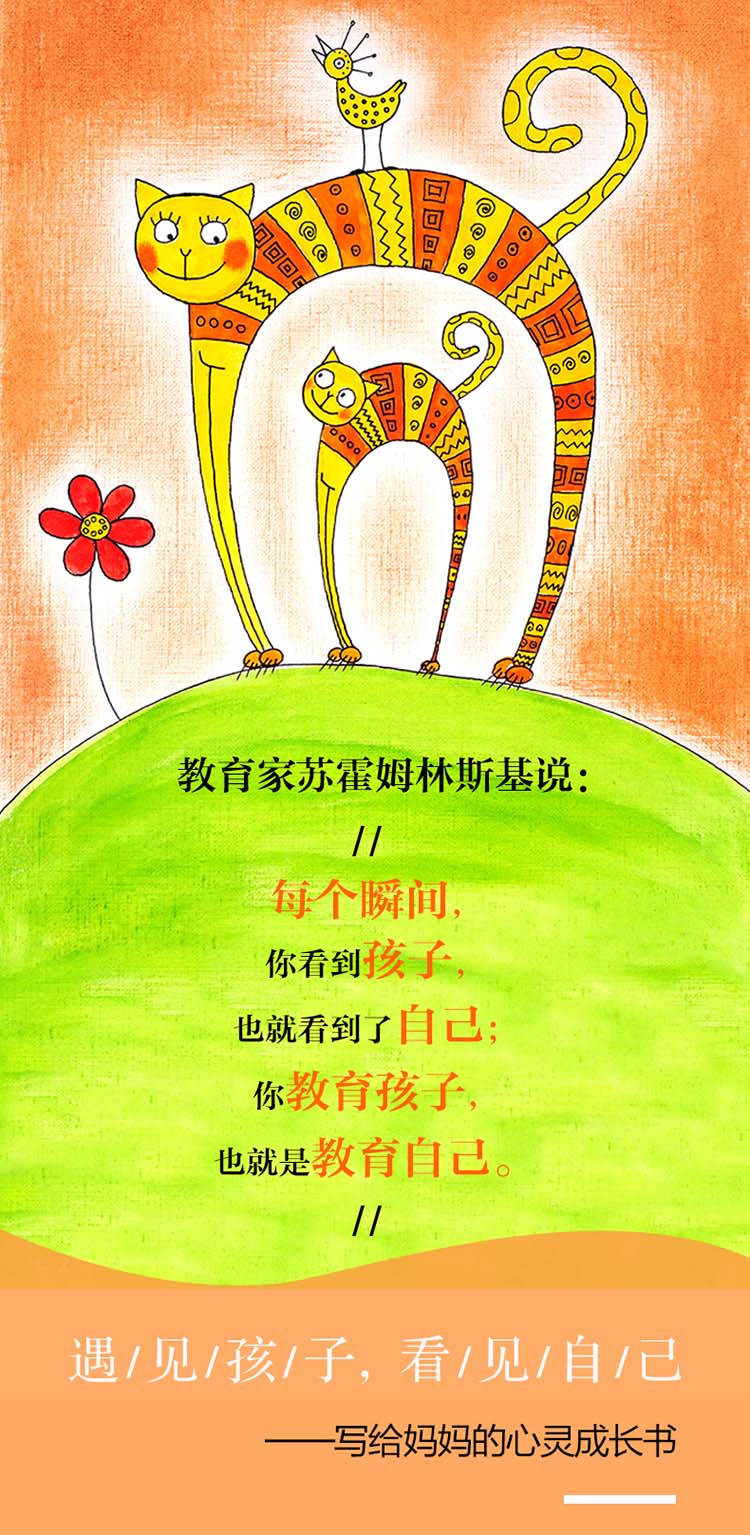 教育家苏霍姆林斯基说：
//
每个瞬间，
你看到孩子，
也就看到了自己；
你教育孩子，
也就是教育自己。
//
遇/见/孩/子，看/见/自/己
——写给妈妈的心灵成长书